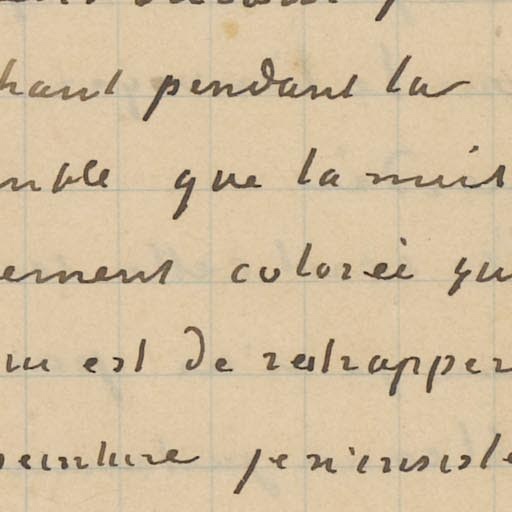 hant pendant la
mble que la nuit
ement colorée qu
est de rattrapper
peinture je n'insiste